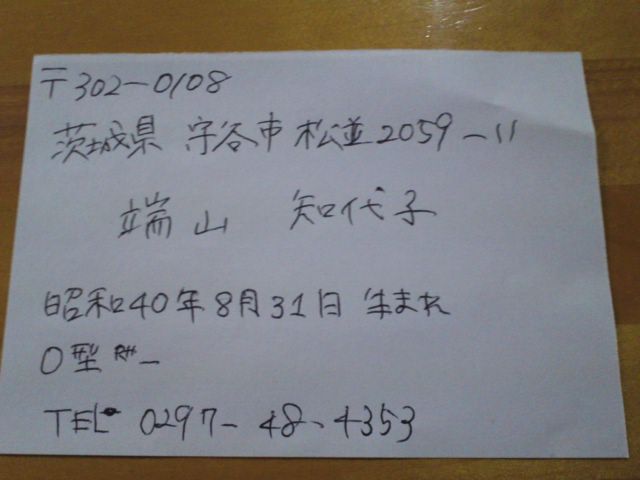 〒302-0108
茨城県 守谷市 松並2059-11
端山 知代子
昭和40年8月31日 生まれ
O型 RH-
TEL 0297-48-4353